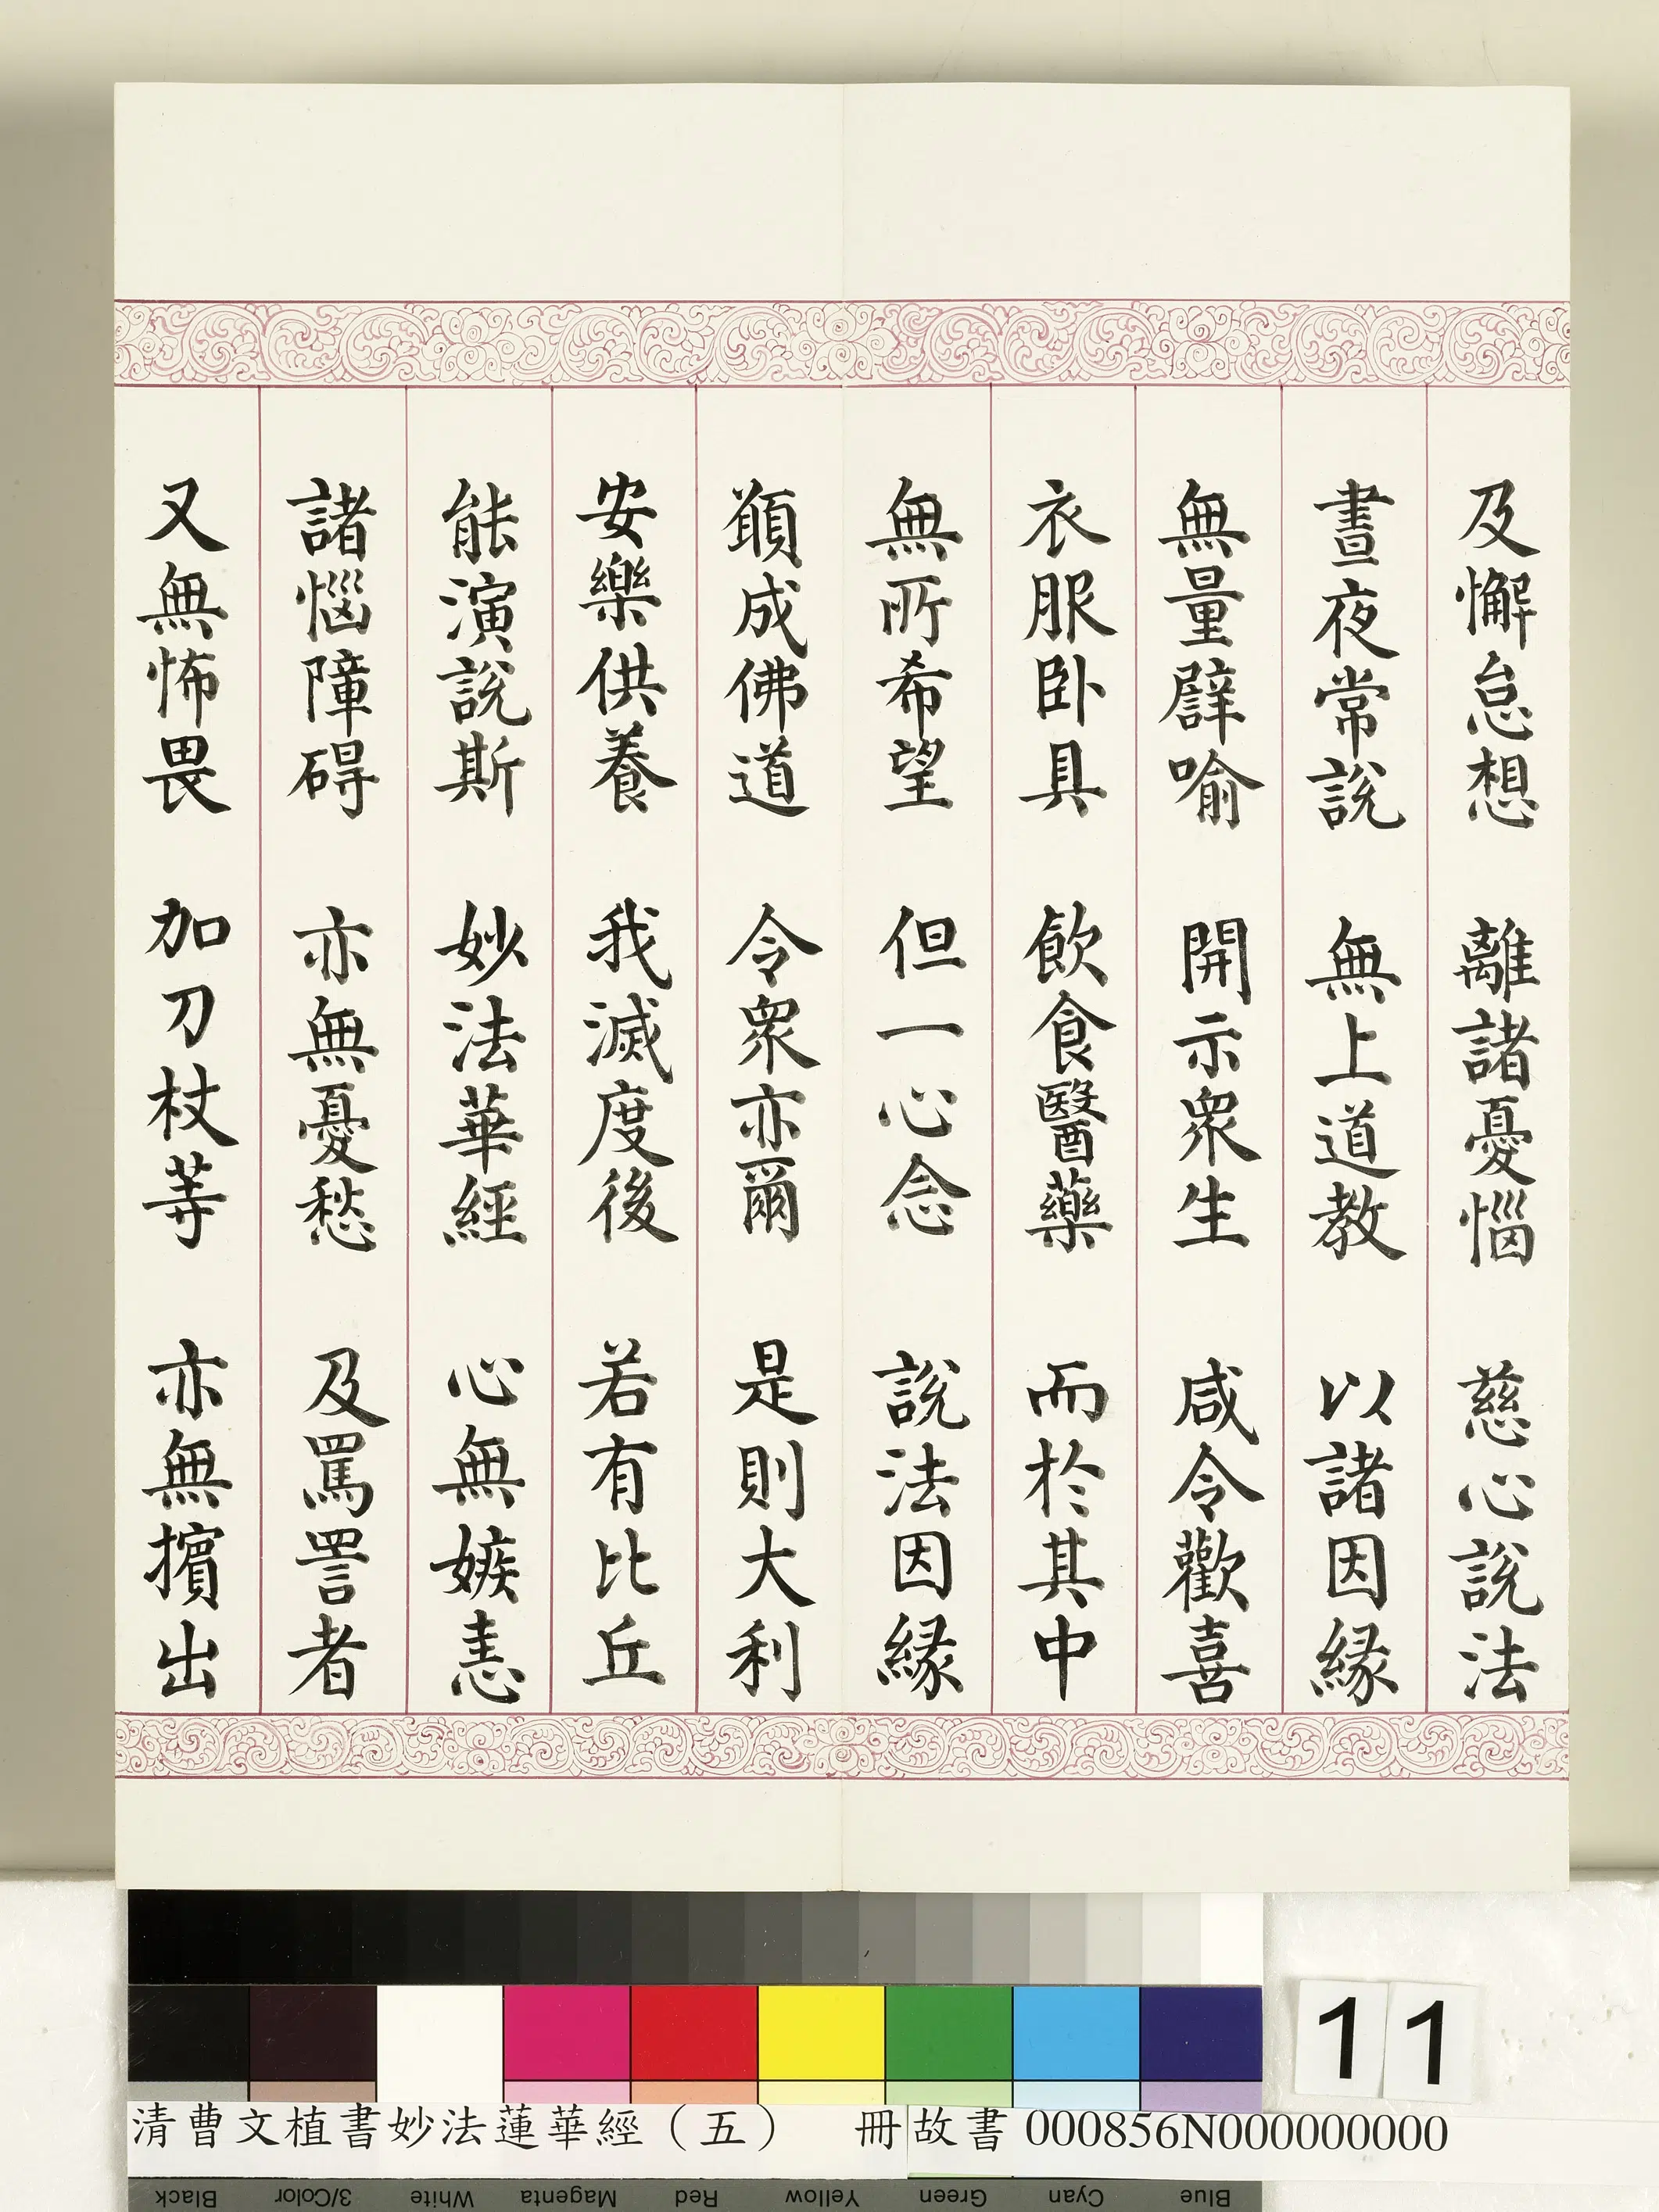 及懈怠想　離諸憂惱　慈心說法
晝夜常說　無上道教　以諸因緣
無量譬喻　開示衆生　咸令歡喜
衣服卧具　飲食醫藥　而於其中
無所希望　但一心念　說法因緣
願成佛道　令衆亦爾　是則大利
安樂供養　我滅度後　若有比丘
能演說斯　妙法華經　心無嫉恚
諸惱障碍　亦無憂愁　及罵詈者
又無怖畏　加刀杖等　亦無擯出
11
清曹文植書妙法蓮華經（五）　冊　故書000856N000000000
Black 3/Color White Magenta Red Yellow Green Cyan Blue